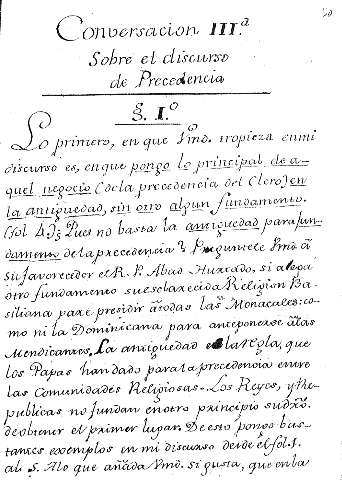 Conversacion III.ª
Sobre el discurso
de Precedencia
§. I.º
Lo primero, en que Vmd. tropieza en mi
discurso es, en que pongo lo principal de a-
quel negocio (de la precedencia del Clero) en
la antiguedad, sin otro algun fundamento.
(fol. 4.) Pues no basta la antiguedad para fun-
damento de la precedencia? Preguntele Vmd. á
su favorecedor el R. P. Abad Hurtado, si alega
otro fundamento su esclarecida Religion Ba-
siliana para presidir á todas las Monacales: co-
mo ni la Dominicana para anteponerse á las
Mendicantes. La antiguedad es la regla, que
los Papas han dado para la precedencia entre
las Comunidades Religiosas. Los Reyes, y Re-
publicas no fundan en otro principio su dro.
de obtener el primer lugar. De esto pongo bas-
tantes exemplos en mi discurso desde el fol. 1.
al 5. A lo que añada Vmd. si gusta, que en la